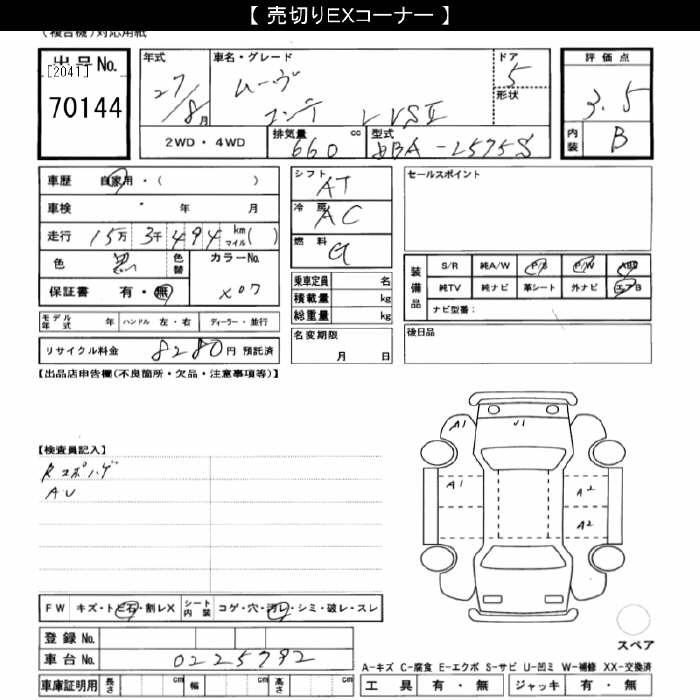 【 売切りEXコーナー 】
(複合機)対応用紙
出品No.
[2041]
70144
年式
27/8月
車名・グレード
ムーヴ
コンテ
ドア
5
形状
評価点
3.5
内装
B
2WD・4WD
排気量
660
cc
型式
DBA-L575S
車歴 自家用・( )
車検 ・ 年 月
走行 15万 3千 494 km マイル( )
色 黒 色替 カラーNo.
X07
保証書 有・無
モデル年式 年 ハンドル 左・右 ディーラー・並行
リサイクル料金 8280円 預託済
シフト
AT
冷房
AC
燃料
乗車定員 名
積載量 kg
総重量 kg
名変期限
月 日
セールスポイント
装備品
S/R 純A/W P/S P/W ABS
純TV 純ナビ 革シート 外ナビ エアB
ナビ型番:
後日品
【出品店申告欄(不良箇所・欠品・注意事項等)】
【検査員記入】
AU
A1
U1
A1
A2
A2
FW キズ・トビ石・割レX シート内装 コゲ・穴・汚レ・シミ・破レ・スレ
登録No.
車台No. 0225792
車庫証明用 長さ cm 幅 cm 高さ cm
スペア
A-キズ C-腐食 E-エクボ S-サビ U-凹ミ W-補修 XX-交換済
工具 有・無 ジャッキ 有・無